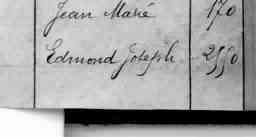 Jean Marie 170
Edmond Joseph 2550